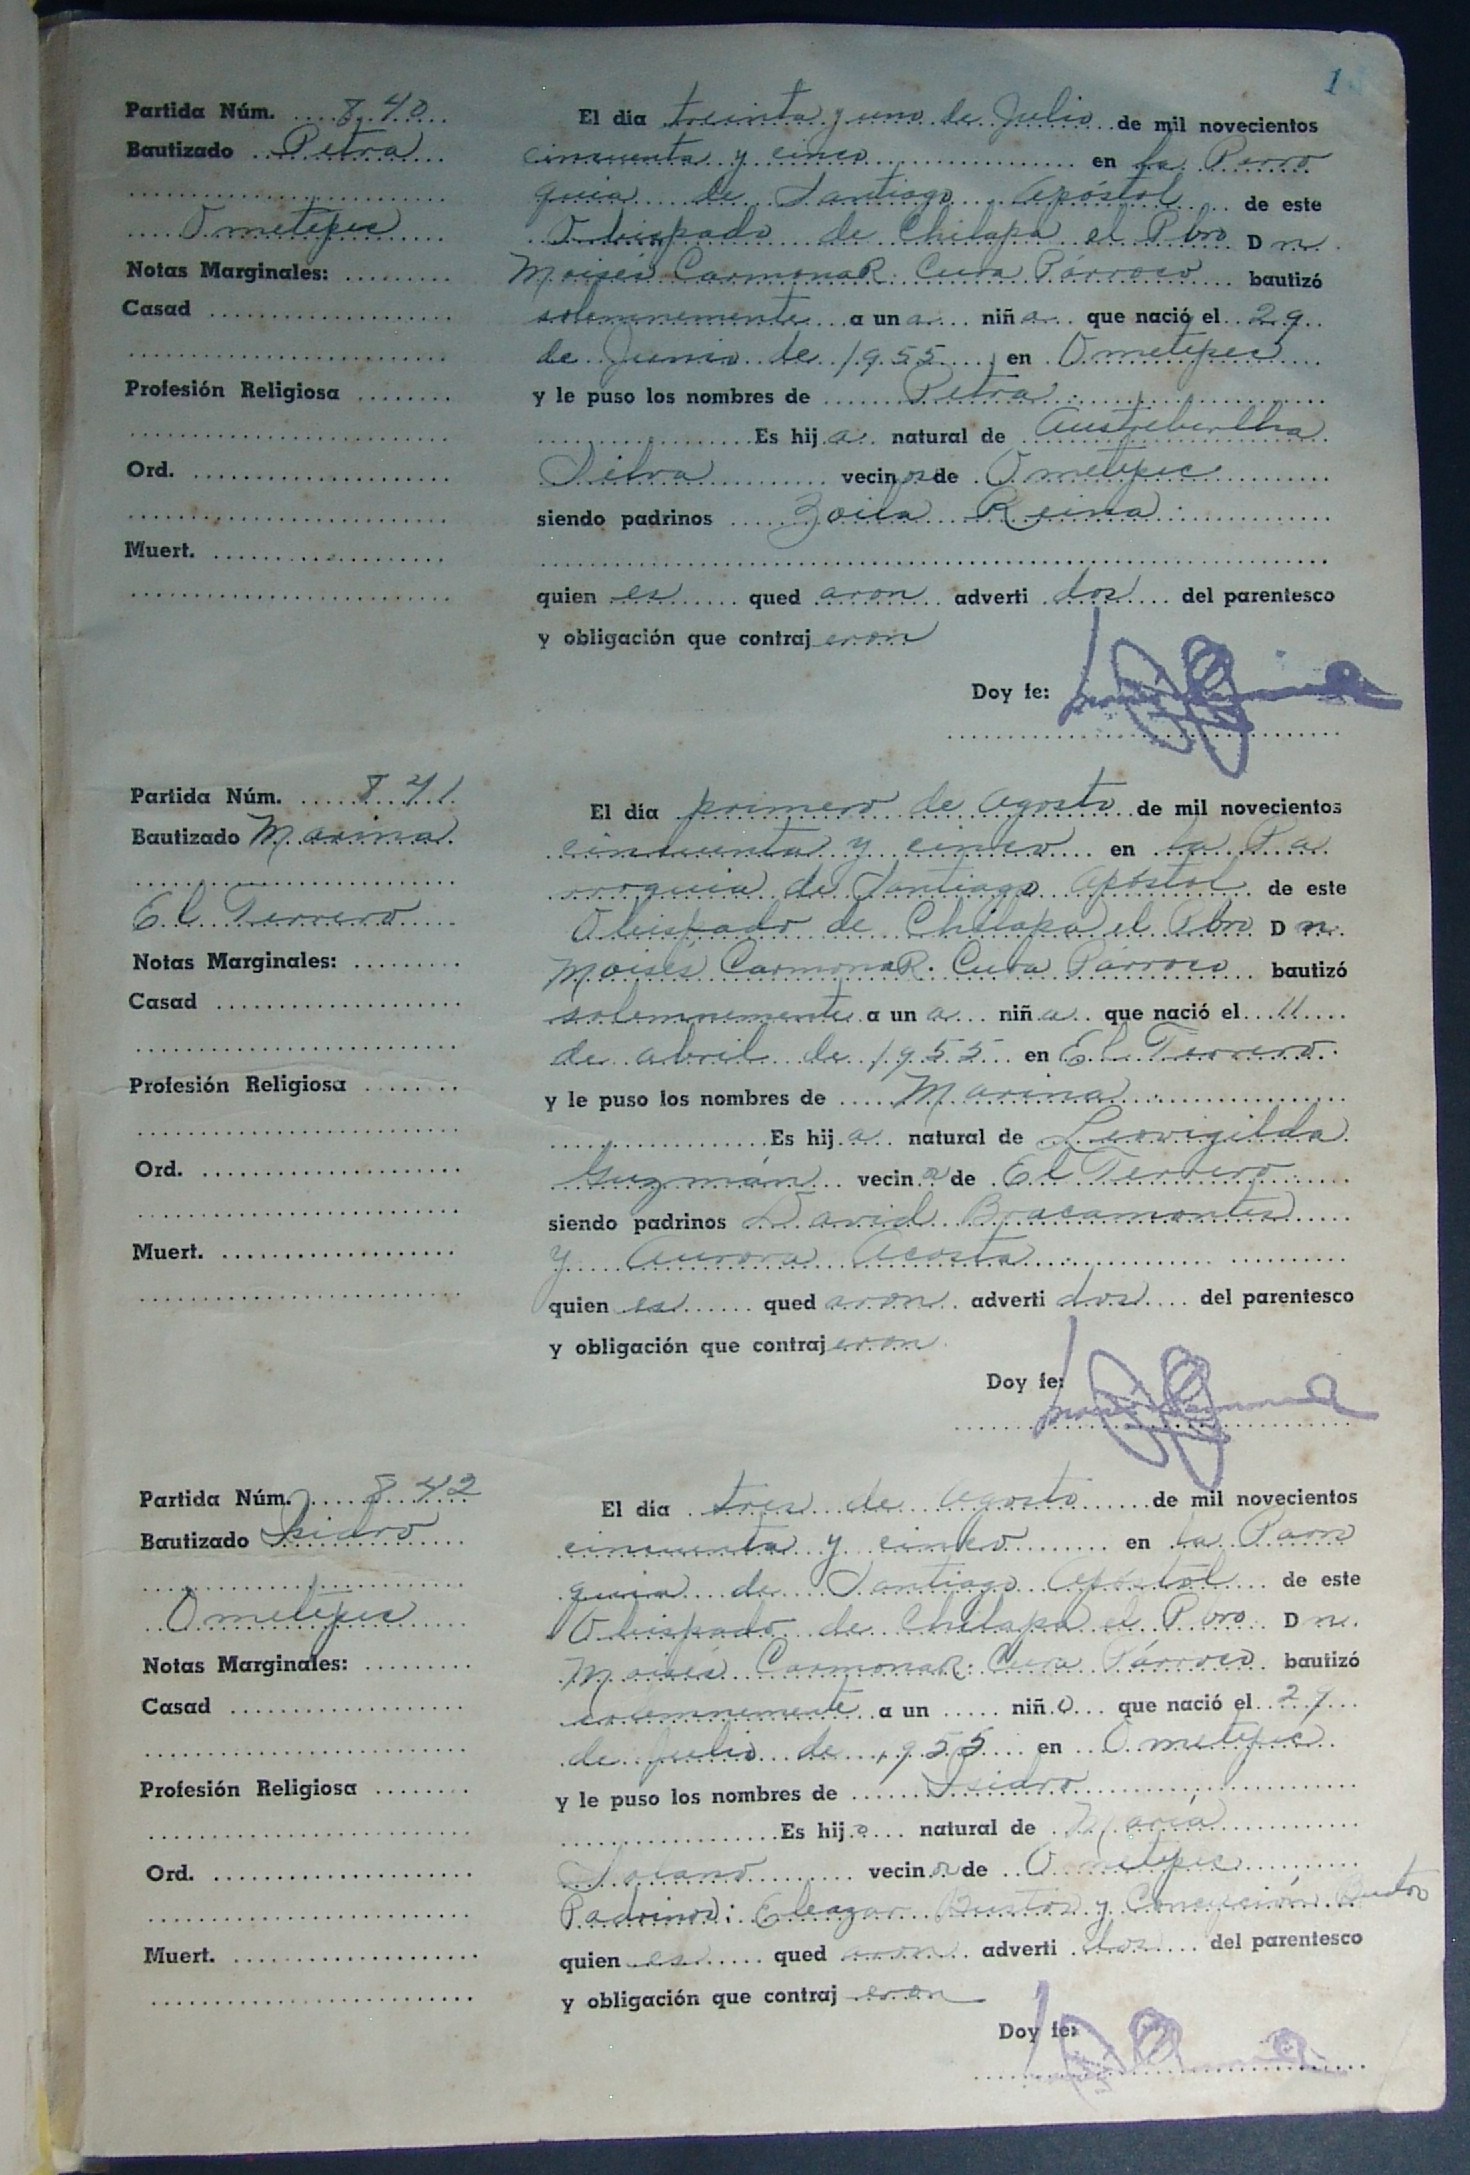 1
Partida Núm. 840
Bautizado Petra
Ometepec
Notas Marginales:
Casad
Profesión Religiosa
Ord.
Muert.
El día treinta y uno de Julio de mil novecientos
cincuenta y cinco en la Parro
quia de Santiago Apóstol de este
Obispado de Chilapa el Pbro Dn
Moisés Carmona R. Cura Párroco bautizó
solemnemente a una niña que nació el 29
de Junio de 1955 en Ometepec
y le puso los nombres de Petra
Es hija natural de Austreberta
Silva vecinos de Ometepec
siendo padrinos Zoila Reina
quienes quedaron advertidos del parentesco
y obligación que contrajeron
Doy fe:
Partida Núm. 841
Bautizado Marina
El Terrero
Notas Marginales:
Casad
Profesión Religiosa
Ord.
Muert.
El día primero de Agosto de mil novecientos
cincuenta y cinco en la Pa
rroquia de Santiago Apóstol de este
Obispado de Chilapa el Pbro Dn
Moisés Carmona R. Cura Párroco bautizó
solemnemente a una niña que nació el 11
de abril de 1955 en El Terrero
y le puso los nombres de Marina
Es hija natural de Leovigilda
Guzmán vecina de El Terrero
siendo padrinos David Bracamontes
y Aurora Acosta
quienes quedaron advertidos del parentesco
y obligación que contrajeron
Doy fe:
Partida Núm. 842
Bautizado Isidro
Ometepec
Notas Marginales:
Casad
Profesión Religiosa
Ord.
Muert.
El día tres de Agosto de mil novecientos
cincuenta y cinco en la Parro
quia de Santiago Apóstol de este
Obispado de Chilapa el Pbro Dn
Moisés Carmona R. Cura Párroco bautizó
solemnemente a un niño que nació el 29
de Julio de 1955 en Ometepec
y le puso los nombres de Isidro
Es hijo natural de María
Solano vecina de Ometepec
Padrinos: Eleazar Bustos y Concepción Bustos
quienes quedaron advertidos del parentesco
y obligación que contrajeron
Doy fe: